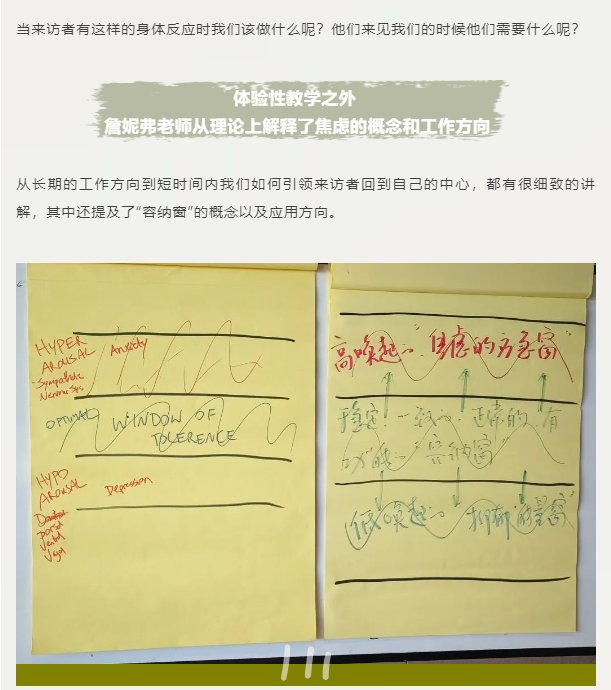 当来访者有这样的身体反应时我们该做什么呢？他们来见我们的时候他们需要什么呢？
体验性教学之外
詹妮弗老师从理论上解释了焦虑的概念和工作方向
从长期的工作方向到短时间内我们如何引领来访者回到自己的中心，都有很细致的讲
解，其中还提及了“容纳窗”的概念以及应用方向。
HYPER
AROUSAL
Anxiety
-Sympathetic
Nervous Sys.
OPTIMAL
WINDOW OF
TOLERENCE
HYPO
AROUSAL
Depression
Dorsal
Ventral
Vagal
高唤起
稳定、一致的、正常的、有
"容纳窗"
低唤起